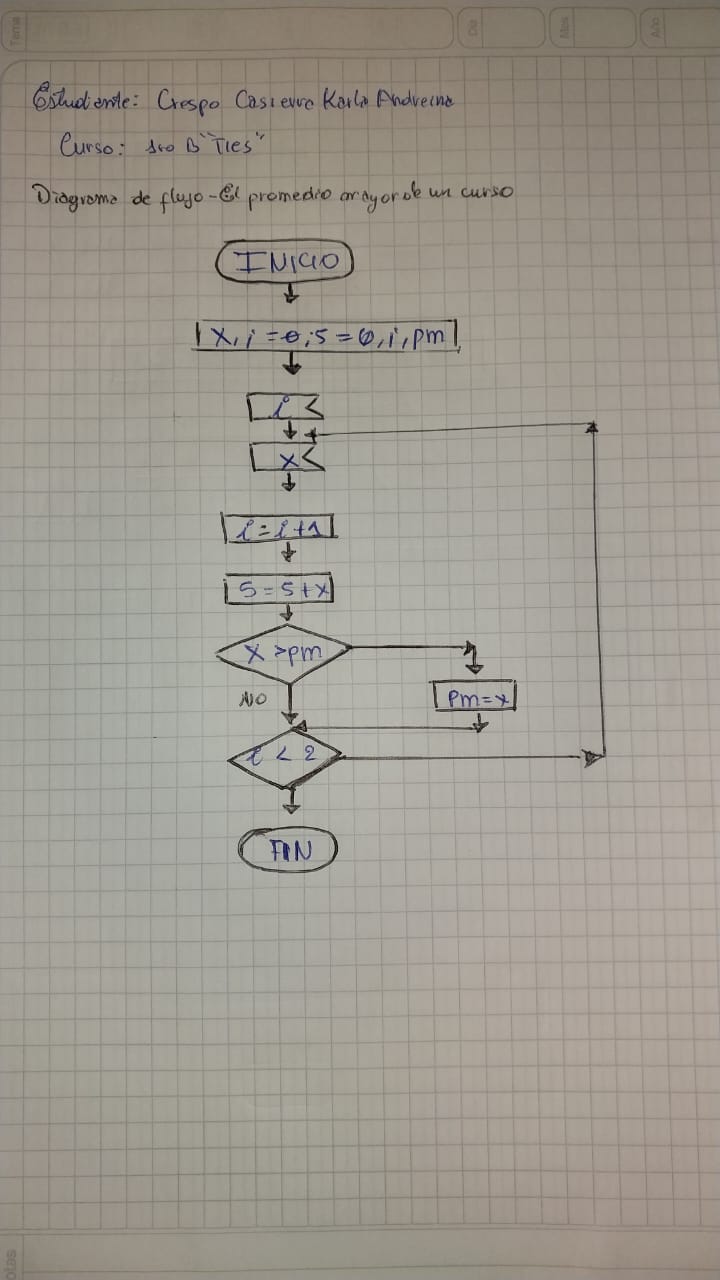 Tema Día Mes Año
Estudiante: Crespo Casierre Karla Andreina
Curso: 1ro B "Tics"
Diagrama de flujo - El promedio mayor de un curso
INICIO
X, i = 0; S = 0, i, pm
i
x
i = i + 1
S = S + x
X > pm
NO
Pm = x
i < 2
FIN
otas